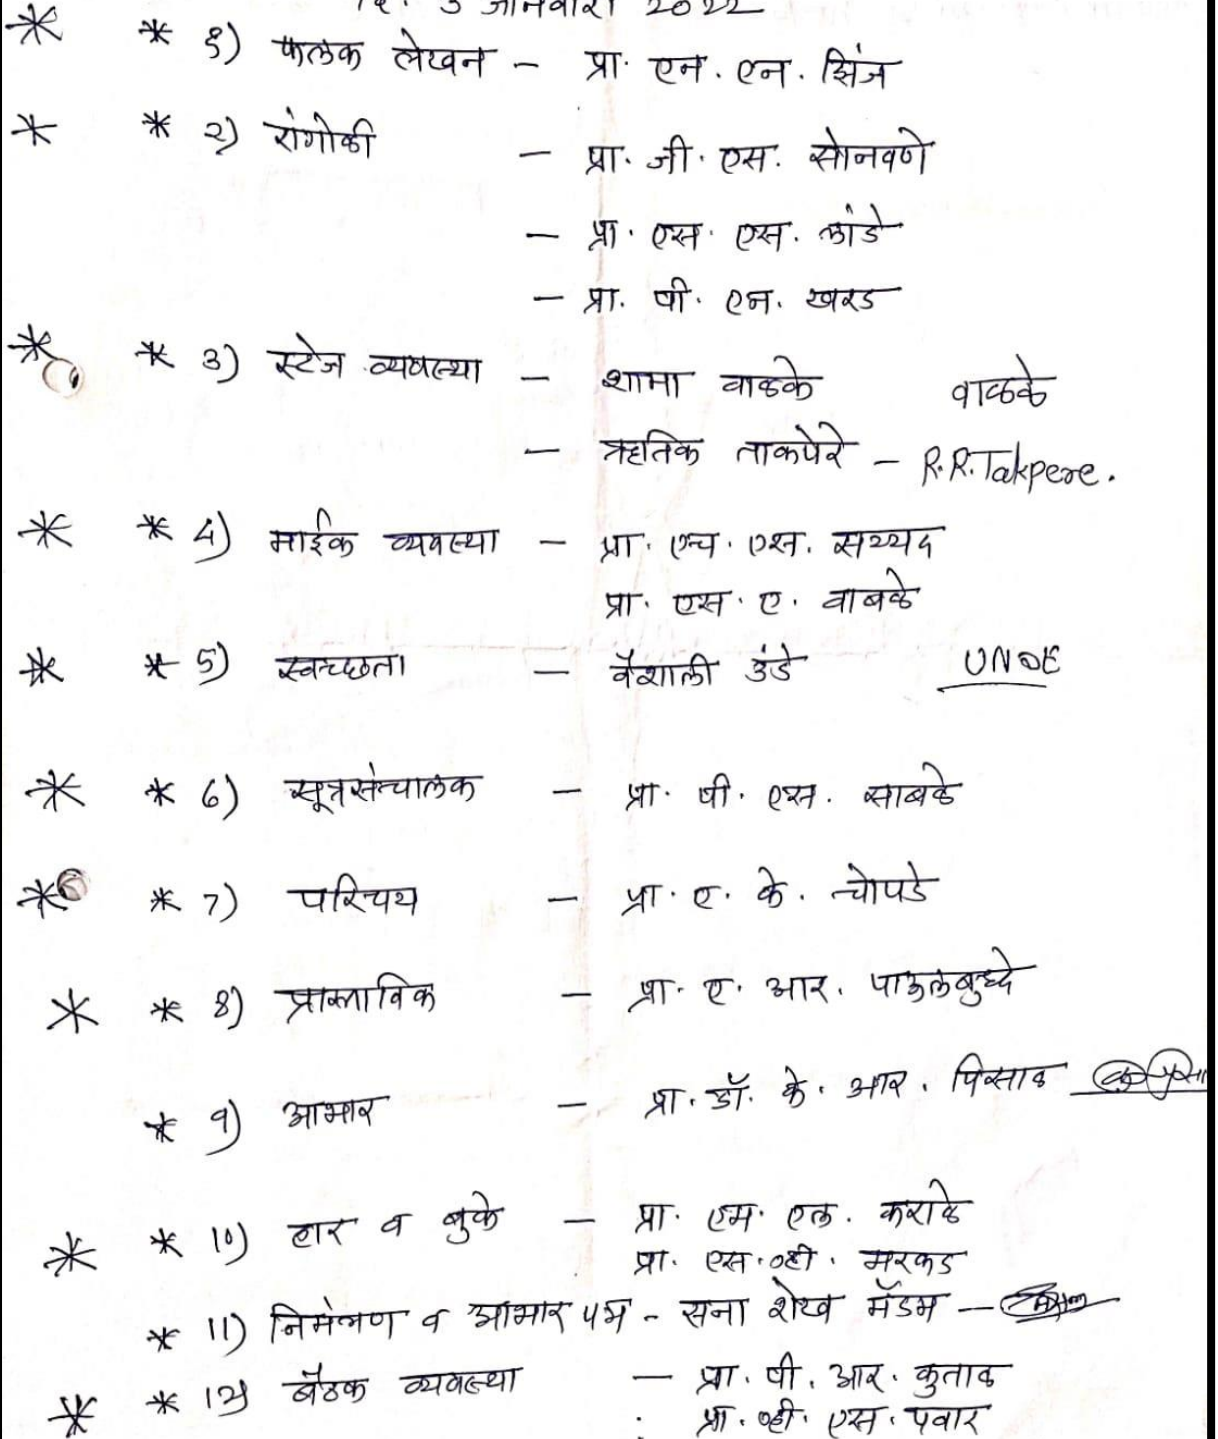 दि. 3 जानेवारी 2022
* * १) फलक लेखन - प्रा. एन. एन. झिंज
* * २) रांगोळी - प्रा. जी. एस. सोनवणे
- प्रा. एस. एस. लांडे
- प्रा. पी. एन. खरड
* * 3) स्टेज व्यवस्था - शामा वाळके वाळके
- ऋतिक ताकपेरे - R.R.Takpere.
* * 4) माईक व्यवस्था - प्रा. एच. एस. सय्यद
प्रा. एस. ए. वाबळे
* * 5) स्वच्छता - वैशाली उंडे UNDE
* * 6) सूत्रसंचालक - प्रा. पी. एस. साबळे
* * 7) परिचय - प्रा. ए. के. चोपडे
* * 8) प्रास्ताविक - प्रा. ए. आर. पाऊलबुध्दे
* 9) आभार - प्रा. डॉ. के. आर. पिसाळ
* * 10) हार व बुके - प्रा. एम. एल. कराळे
प्रा. एस. व्ही. मरकड
* 11) निमंत्रण व आभार पत्र - सना शेख मॅडम -
* * 12) बैठक व्यवस्था - प्रा. पी. आर. कुताळ
प्रा. व्ही. एस. पवार